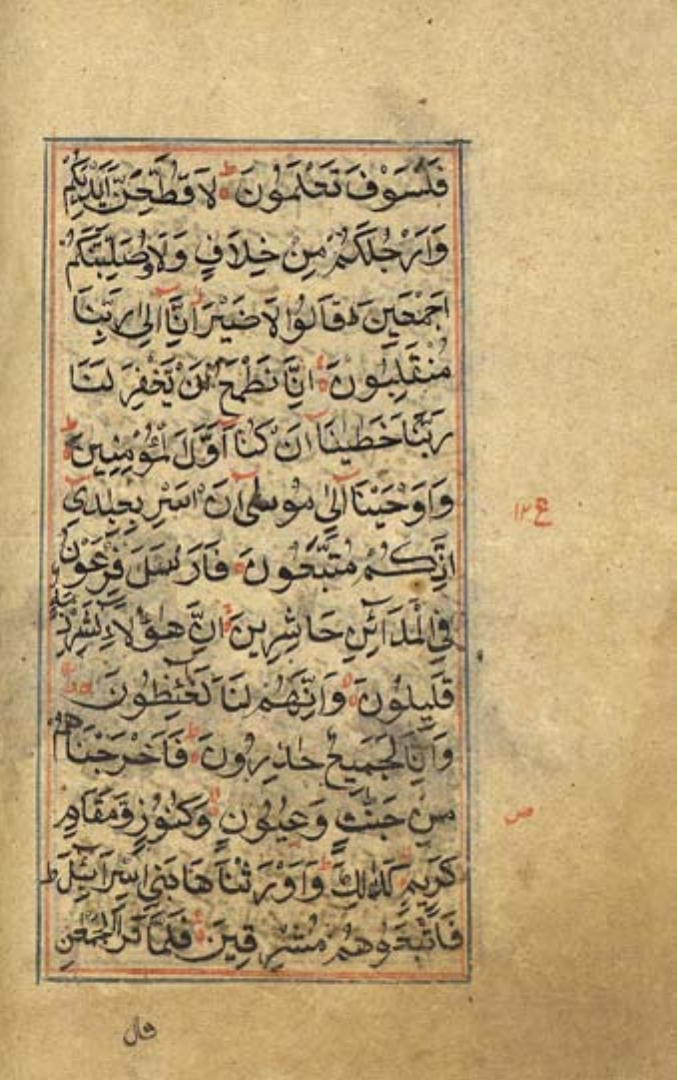 فَلَسَوْفَ تَعْلَمُونَ ط لَاُقَطِّعَنَّ اَيْدِيَكُمْ
وَاَرْجُلَكُمْ مِنْ خِلَافٍ وَلَاُوصَلِّبَنَّكُمْ
اَجْمَعِينَ قَالُوا لَاضَيْرَ اِنَّا اِلٰى رَبِّنَا
مُنْقَلِبُونَ اِنَّا نَطْمَعُ اَنْ يَّغْفِرَ لَنَا
رَبُّنَا خَطٰيٰنَا اَنْ كُنَّا اَوَّلَ لْمُؤْمِنِينَ ط
وَاَوْحَيْنَا اِلٰى مُوسٰى اَنْ اَسْرِ بِعِبَادِى
اِنَّكُمْ مُتَّبَعُونَ فَاَرْسَلَ فِرْعَوْنُ
فِى الْمَدَائِنِ حَاشِرِينَ اِنَّ هٰؤُلَاءِ لَشِرْذِمَةٌ
قَلِيلُونَ وَاِنَّهُمْ لَنَا لَغَائِظُونَ
وَاِنَّا لَجَمِيعٌ حٰذِرُونَ فَاَخْرَجْنَاهُمْ
مِنْ جَنّٰتٍ وَعُيُونٍ وَكُنُوزٍ وَّمَقَامٍ
كَرِيمٍ كَذٰلِكَ وَاَوْرَثْنَاهَا بَنِى اِسْرَائِلَ ط
فَاَتْبَعُوهُمْ مُشْرِقِينَ فَلَمَّا تَرَاَ الْجَمْعٰنِ
ع ١٢
ص
قال